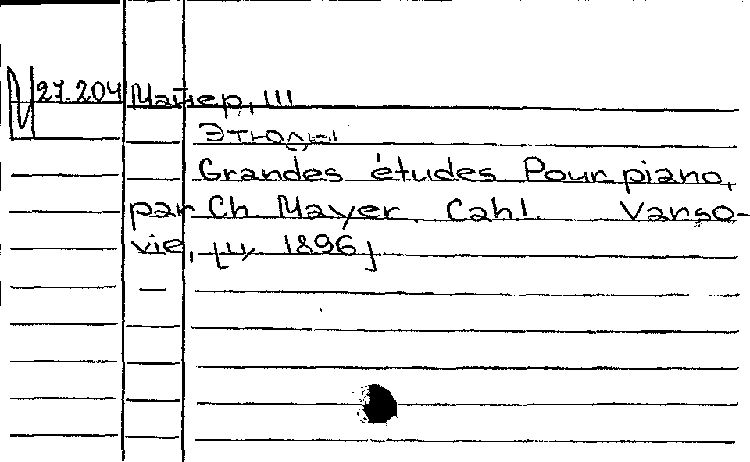 И 27.204 Майер, Ш
Этюды
Grandes études Pour piano,
par Ch Mayer. Cah 1. Varso-
vie, [ц. 1896]